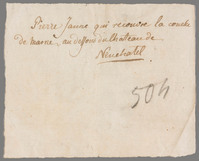 Pierre Jaune qui recouvre la couche
de marne, au dessous du chateau de
Neuchatel
504